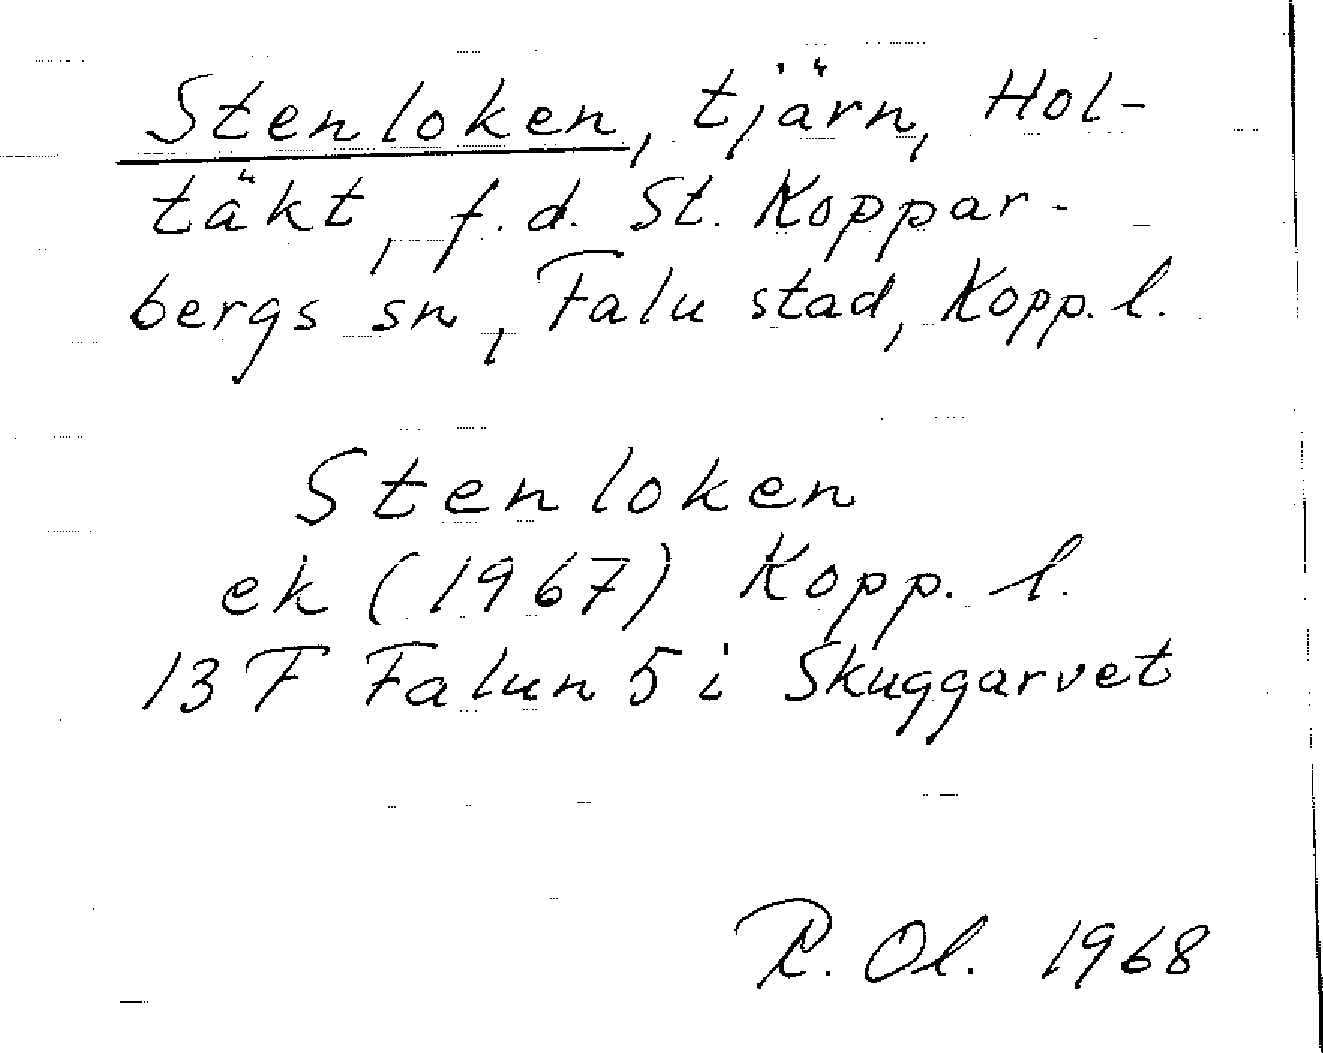 Stenloken, tjärn, Hol-
täkt, f.d. St. Koppar-
bergs sn, Falu stad, Kopp. l.
Stenloken
ek (1967) Kopp. l.
13 F Falun 5 i Skuggarvet
R. Ol. 1968